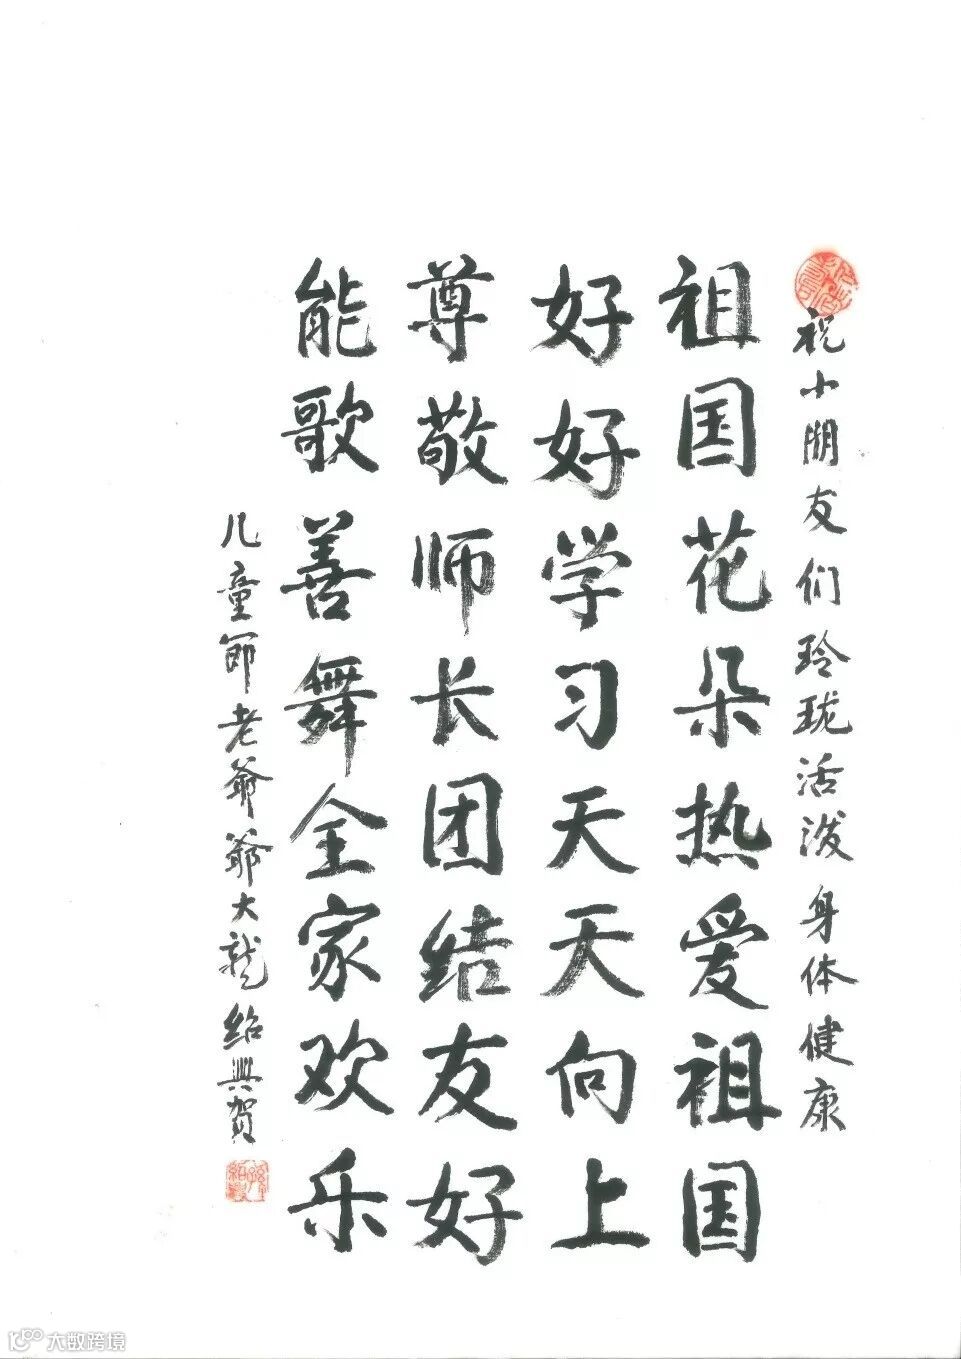 祝小朋友们玲珑活泼身体健康
祖国花朵热爱祖国
好好学习天天向上
尊敬师长团结友好
能歌善舞全家欢乐
儿童节老爷爷大龙绍興贺
大数跨境